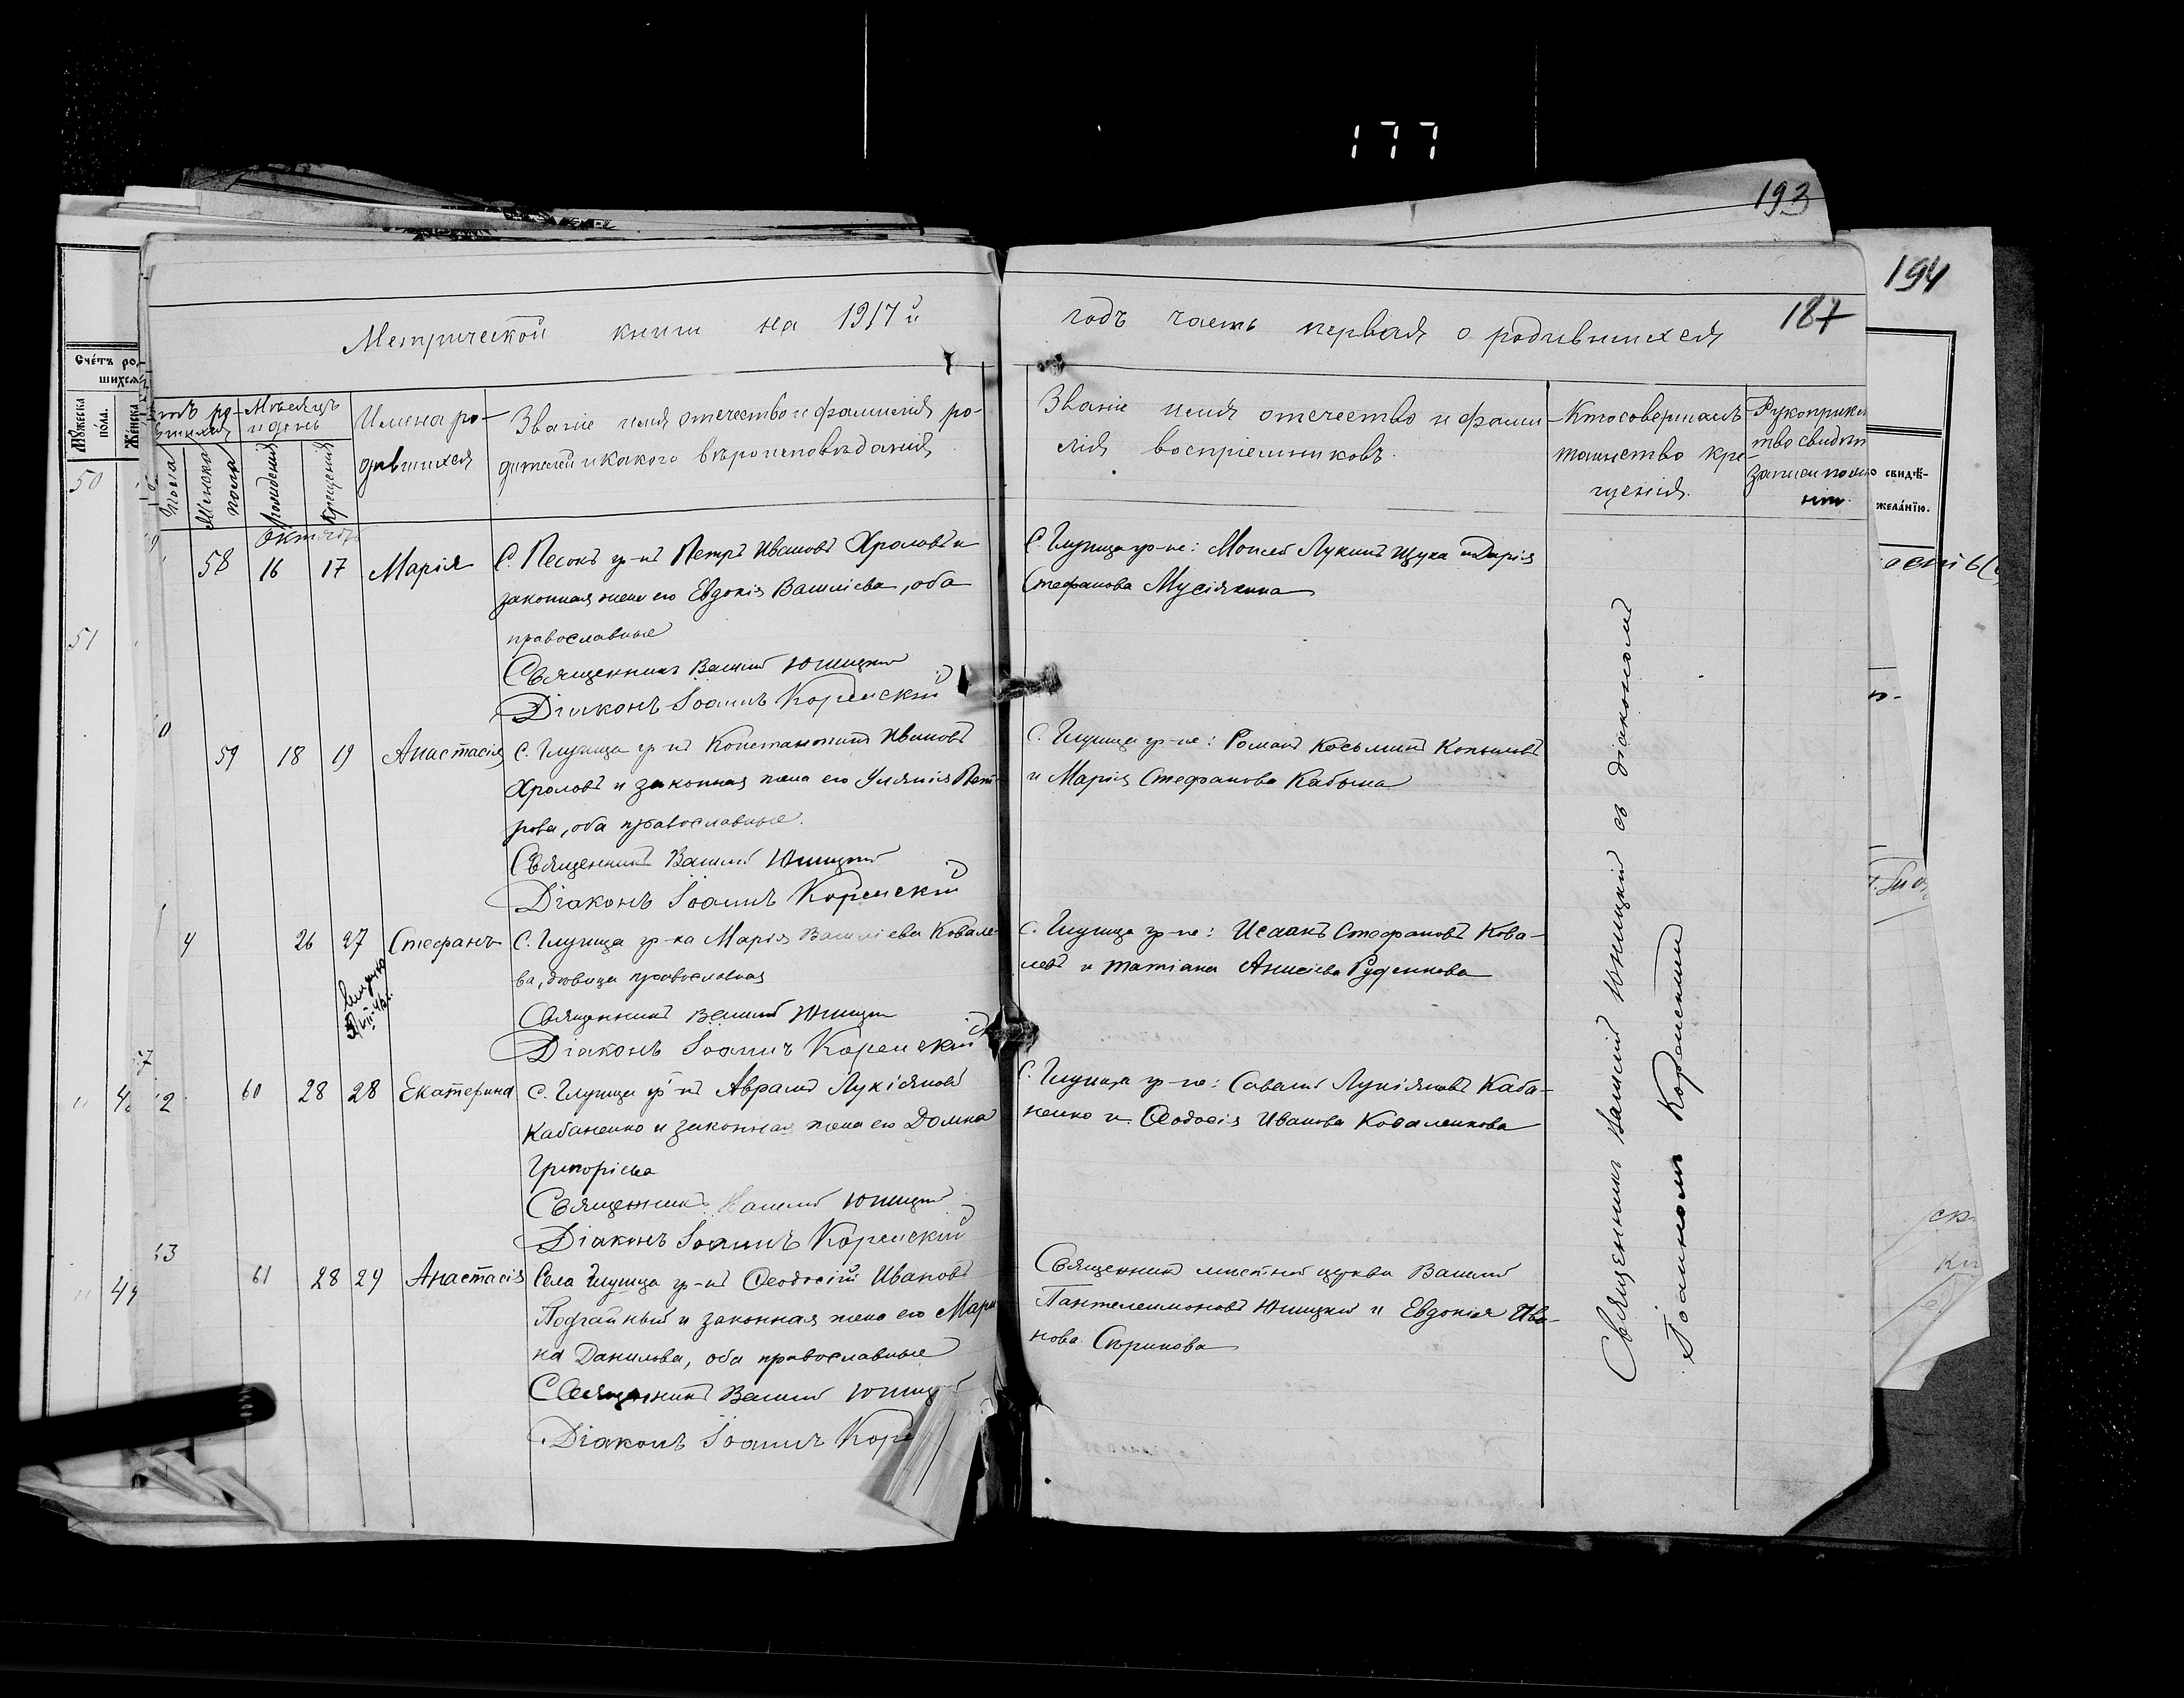 177
193
194
187
Метрической книги на 1917й
годъ часть первая о родившихся
Счéтъ ро-
шихся
Мꙋжеска пóла.
Женска
Мѣсяцъ и день
Женска пола
рожденія
крещенія
Имена ро-
дившихся
Званіе имя отчество и фамилія ро-
дителей и какого вѣроисповѣданія
Званіе имя отчество и фами-
лія воспріемниковъ.
Кто совершалъ
таинство кре-
щенія.
Рукоприклад
тво свидѣт
записи по
свидѣ-
желáнїю.
50
51
октябрь
58 16 17 Марія
С. Песокъ гр-нъ Петръ Ивановъ Хроловъ и
законная жена его Евдокія Васильева, оба
православные
Священникъ Василій Юницкій
Діаконъ Іоаннъ Коренскій
С. Глушца гр-не: Моисей Лукинъ Щука и Дарія
Стефанова Мусіякина
59 18 19 Анастасія
С. Глушца гр-нъ Константинъ Ивановъ
Хроловъ и законная жена его Уліянія Пет-
рова, оба православные.
Священникъ Василій Юницкій
Діаконъ Іоаннъ Коренскій
С. Глушца гр-не: Романъ Косьминъ Копыловъ
и Марія Стефанова Кабына
4 26 27 Стефанъ
С. Глушца гр-ка Марія Васильева Ковале-
ва, дѣвица православная
Священникъ Василій Юницкій
Діаконъ Іоаннъ Коренскій
С. Глушца гр-не: Исаакъ Стефановъ Кова-
левъ и Татіана Анисіева Руденкова
60 28 28 Екатерина
С. Глушца гр-нъ Аврамъ Лукіяновъ
Кабаненко и законная жена его Домна
Григоріева
Священникъ Василій Юницкій
Діаконъ Іоаннъ Коренскій
С. Глушца гр-не: Савелій Лукіяновъ Каба-
ненко и Ѳеодосія Иванова Коваленкова
61 28 29 Анастасія
Села Глушца гр-нъ Ѳеодосій Ивановъ
Подгайный и законная жена его Мари
на Данилова, оба православные
Священникъ Василій Юниц
Діаконъ Іоаннъ Коре
Священникъ мѣстной церкви Василій
Пантелеимоновъ Юницкій и Евдокія Ива-
нова Скрипова
Священникъ Василій Юницкій съ діакономъ
Іоанномъ Коренскимъ